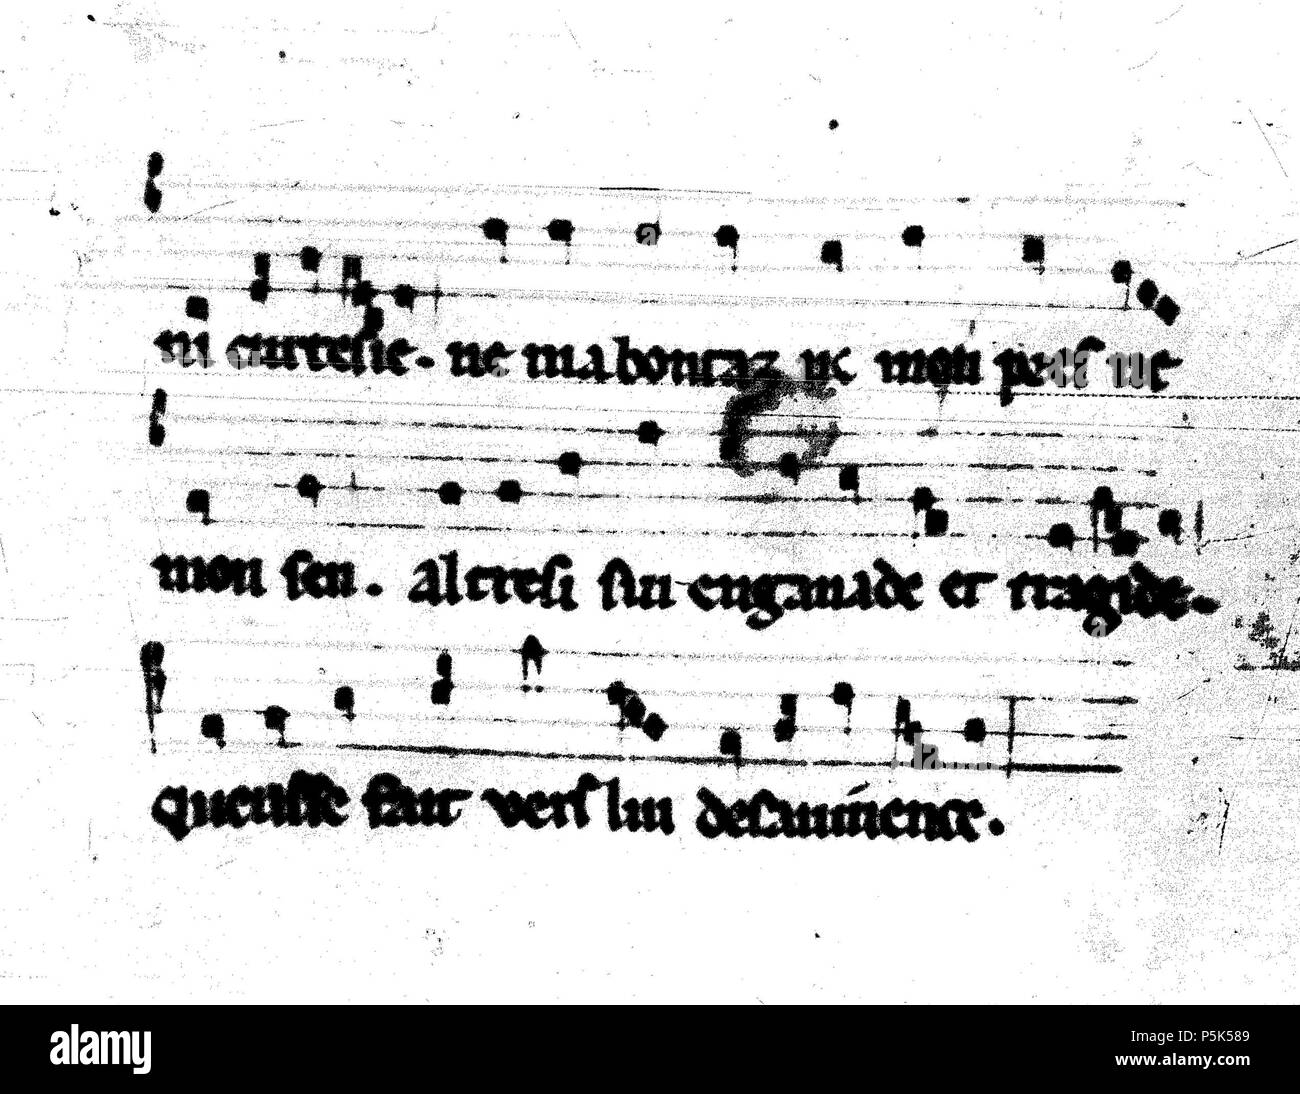 ni curtesie. ne ma bontaz ne mon pers ne
mon sen. Altresi sui enganade et tragide.
Queusse fait vers lui desauinence.
alamy
alamy
Image ID: P5K589
www.alamy.com